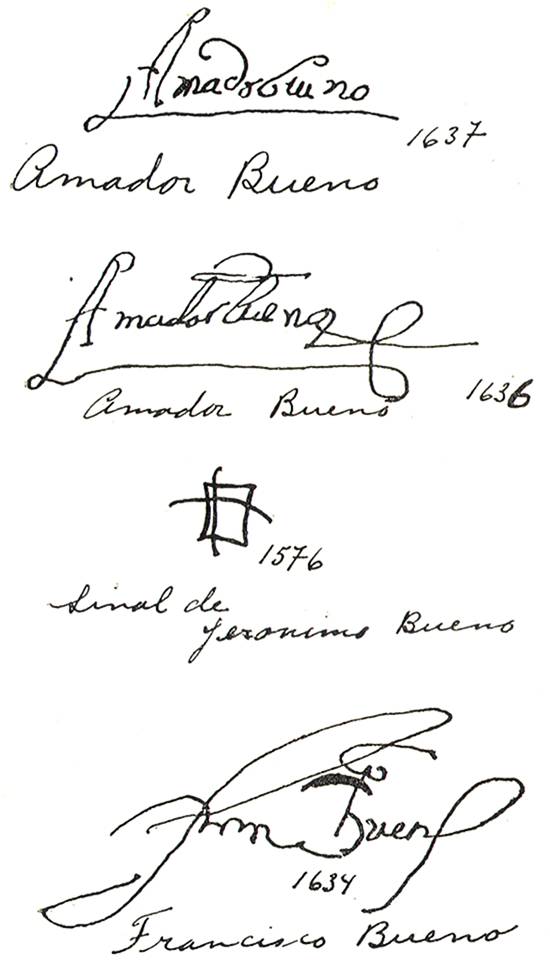 Amador bueno
1637
Amador Bueno
Amador Bueno
1636
Amador Bueno
1576
Sinal de
Jeronimo Bueno
Bueno
1634
Francisco Bueno